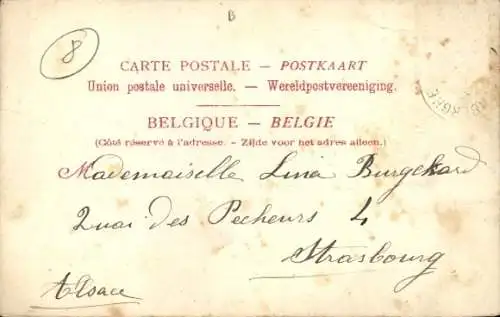 B
8
CARTE POSTALE — POSTKAART
Union postale universelle. — Wereldpostvereeniging.
BELGIQUE — BELGIE
(Côté réservé à l'adresse. - Zijde voor het adres alleen.)
Mademaiselle Lina Burgekard
Quai des Pecheurs 4
Strasbourg
Alsace